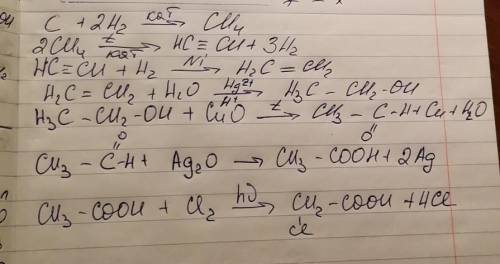 C + 2H₂ —кат→ CH₄
2CH₄ —t, кат→ HC≡CH + 3H₂
HC≡CH + H₂ —Ni→ H₂C=CH₂
H₂C=CH₂ + H₂O —Hg²⁺, H⁺→ H₃C–CH₂–OH
H₃C–CH₂–OH + CuO —t→ CH₃–C(=O)–H + Cu + H₂O
CH₃–C(=O)–H + Ag₂O → CH₃–COOH + 2Ag
CH₃–COOH + Cl₂ —hν→ CH₂(Cl)–COOH + HCl